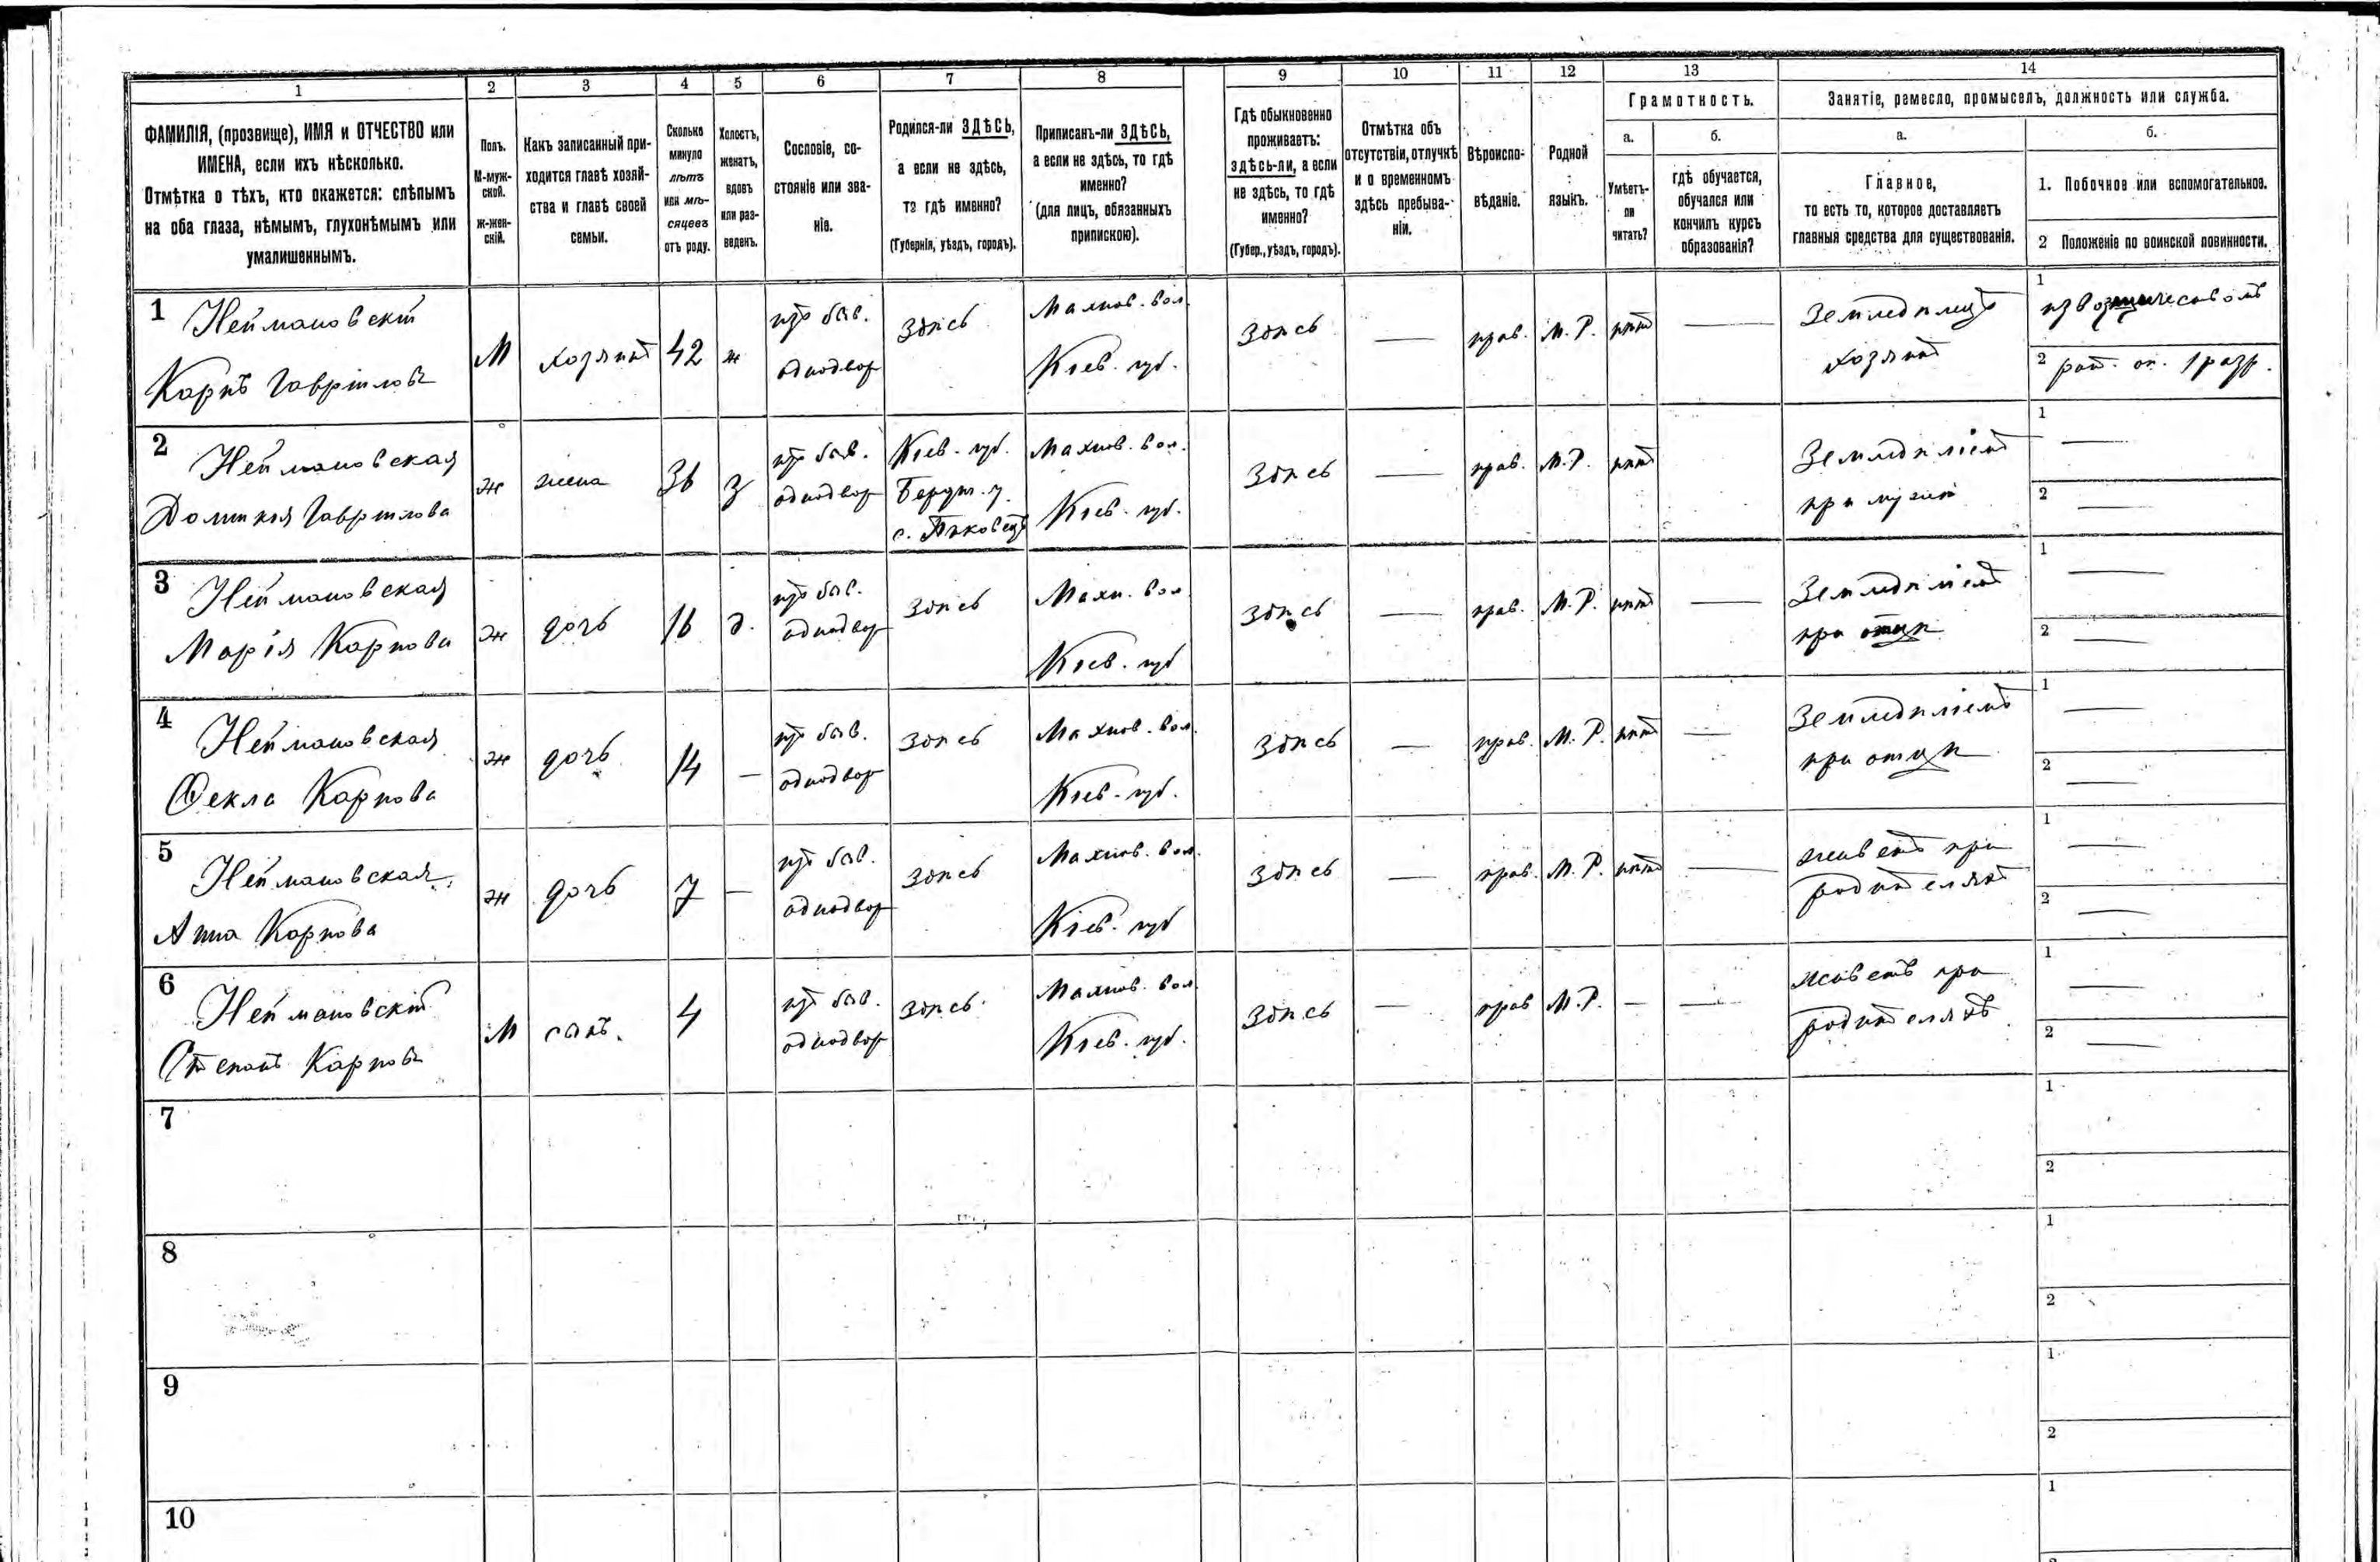 1 2 3 4 5 6 7 8 9 10 11 12 13 14
ФАМИЛІЯ, (прозвище), ИМЯ и ОТЧЕСТВО или
ИМЕНА, если ихъ нѣсколько.
Отмѣтка о тѣхъ, кто окажется: слѣпымъ
на оба глаза, нѣмымъ, глухонѣмымъ или
умалишеннымъ.
Полъ.
М-муж-
ской.
ж-жен-
скій.
Какъ записанный при-
ходится главѣ хозяй-
ства и главѣ своей
семьи.
Сколько
минуло
лѣтъ
или мѣ-
сяцевъ
отъ роду.
Холостъ,
женатъ,
вдовъ
или раз-
веденъ.
Сословіе, со-
стояніе или зва-
ніе.
Родился-ли ЗДѢСЬ,
а если не здѣсь,
то гдѣ именно?
(Губернія, уѣздъ, городъ).
Приписанъ-ли ЗДѢСЬ,
а если не здѣсь, то гдѣ
именно?
(для лицъ, обязанныхъ
припискою).
Гдѣ обыкновенно
проживаетъ:
здѣсь-ли, а если
не здѣсь, то гдѣ
именно?
(Губер., уѣздъ, городъ).
Отмѣтка объ
отсутствіи, отлучкѣ
и о временномъ
здѣсь пребыва-
ніи.
Вѣроиспо-
вѣданіе.
Родной
языкъ.
Грамотность.
а.
Умѣетъ-
ли
читать?
б.
гдѣ обучается,
обучался или
кончилъ курсъ
образованія?
Занятіе, ремесло, промыселъ, должность или служба.
а.
Главное,
то есть то, которое доставляетъ
главныя средства для существованія.
б.
1. Побочное или вспомогательное.
2 Положеніе по воинской повинности.
1 Неймановскій
Карпъ Гавріиловъ
М
хозяинъ
42
ж
изъ быв.
однодвор
здѣсь
Махнов. вол.
Кіев. губ.
здѣсь
—
прав.
М. Р.
нѣтъ
—
Земледѣлецъ
хозяинъ
1 извозничествомъ
2 рат. оп. 1 разр.
2 Неймановская
Домникія Гавриилова
ж
жена
36
з
изъ быв.
однодвор
Кіев. губ.
Бердич. у.
с. Пиковецъ
Махнов. вол.
Кіев. губ.
здѣсь
—
прав.
М. Р.
нѣтъ
Земледѣліемъ
при мужѣ
1 —
2 —
3 Неймановская
Марія Карпова
ж
дочь
16
д.
изъ быв.
однодвор
здѣсь
Махн. вол
Кіев. губ
здѣсь
—
прав.
М. Р.
нѣтъ
—
Земледѣліемъ
при отцѣ
1 —
2 —
4 Неймановская
Ѳекла Карпова
ж
дочь
14
—
изъ быв.
однодвор
здѣсь
Махнов. вол.
Кіев. губ.
здѣсь
—
прав.
М. Р.
нѣтъ
—
Земледѣліемъ
при отцѣ
1 —
2 —
5 Неймановская
Анна Карпова
ж
дочь
7
—
изъ быв.
однодвор
здѣсь
Махнов. вол.
Кіев. губ
здѣсь
—
прав.
М. Р.
нѣтъ
—
живетъ при
родителяхъ
1 —
2 —
6 Неймановскій
Степанъ Карповъ
М
сынъ.
4
изъ быв.
однодвор
здѣсь
Махнов. вол.
Кіев. губ.
здѣсь
—
прав
М. Р.
—
—
живетъ при
родителяхъ
1 —
2 —
7
1
2
8
1
2
9
1
2
10
1